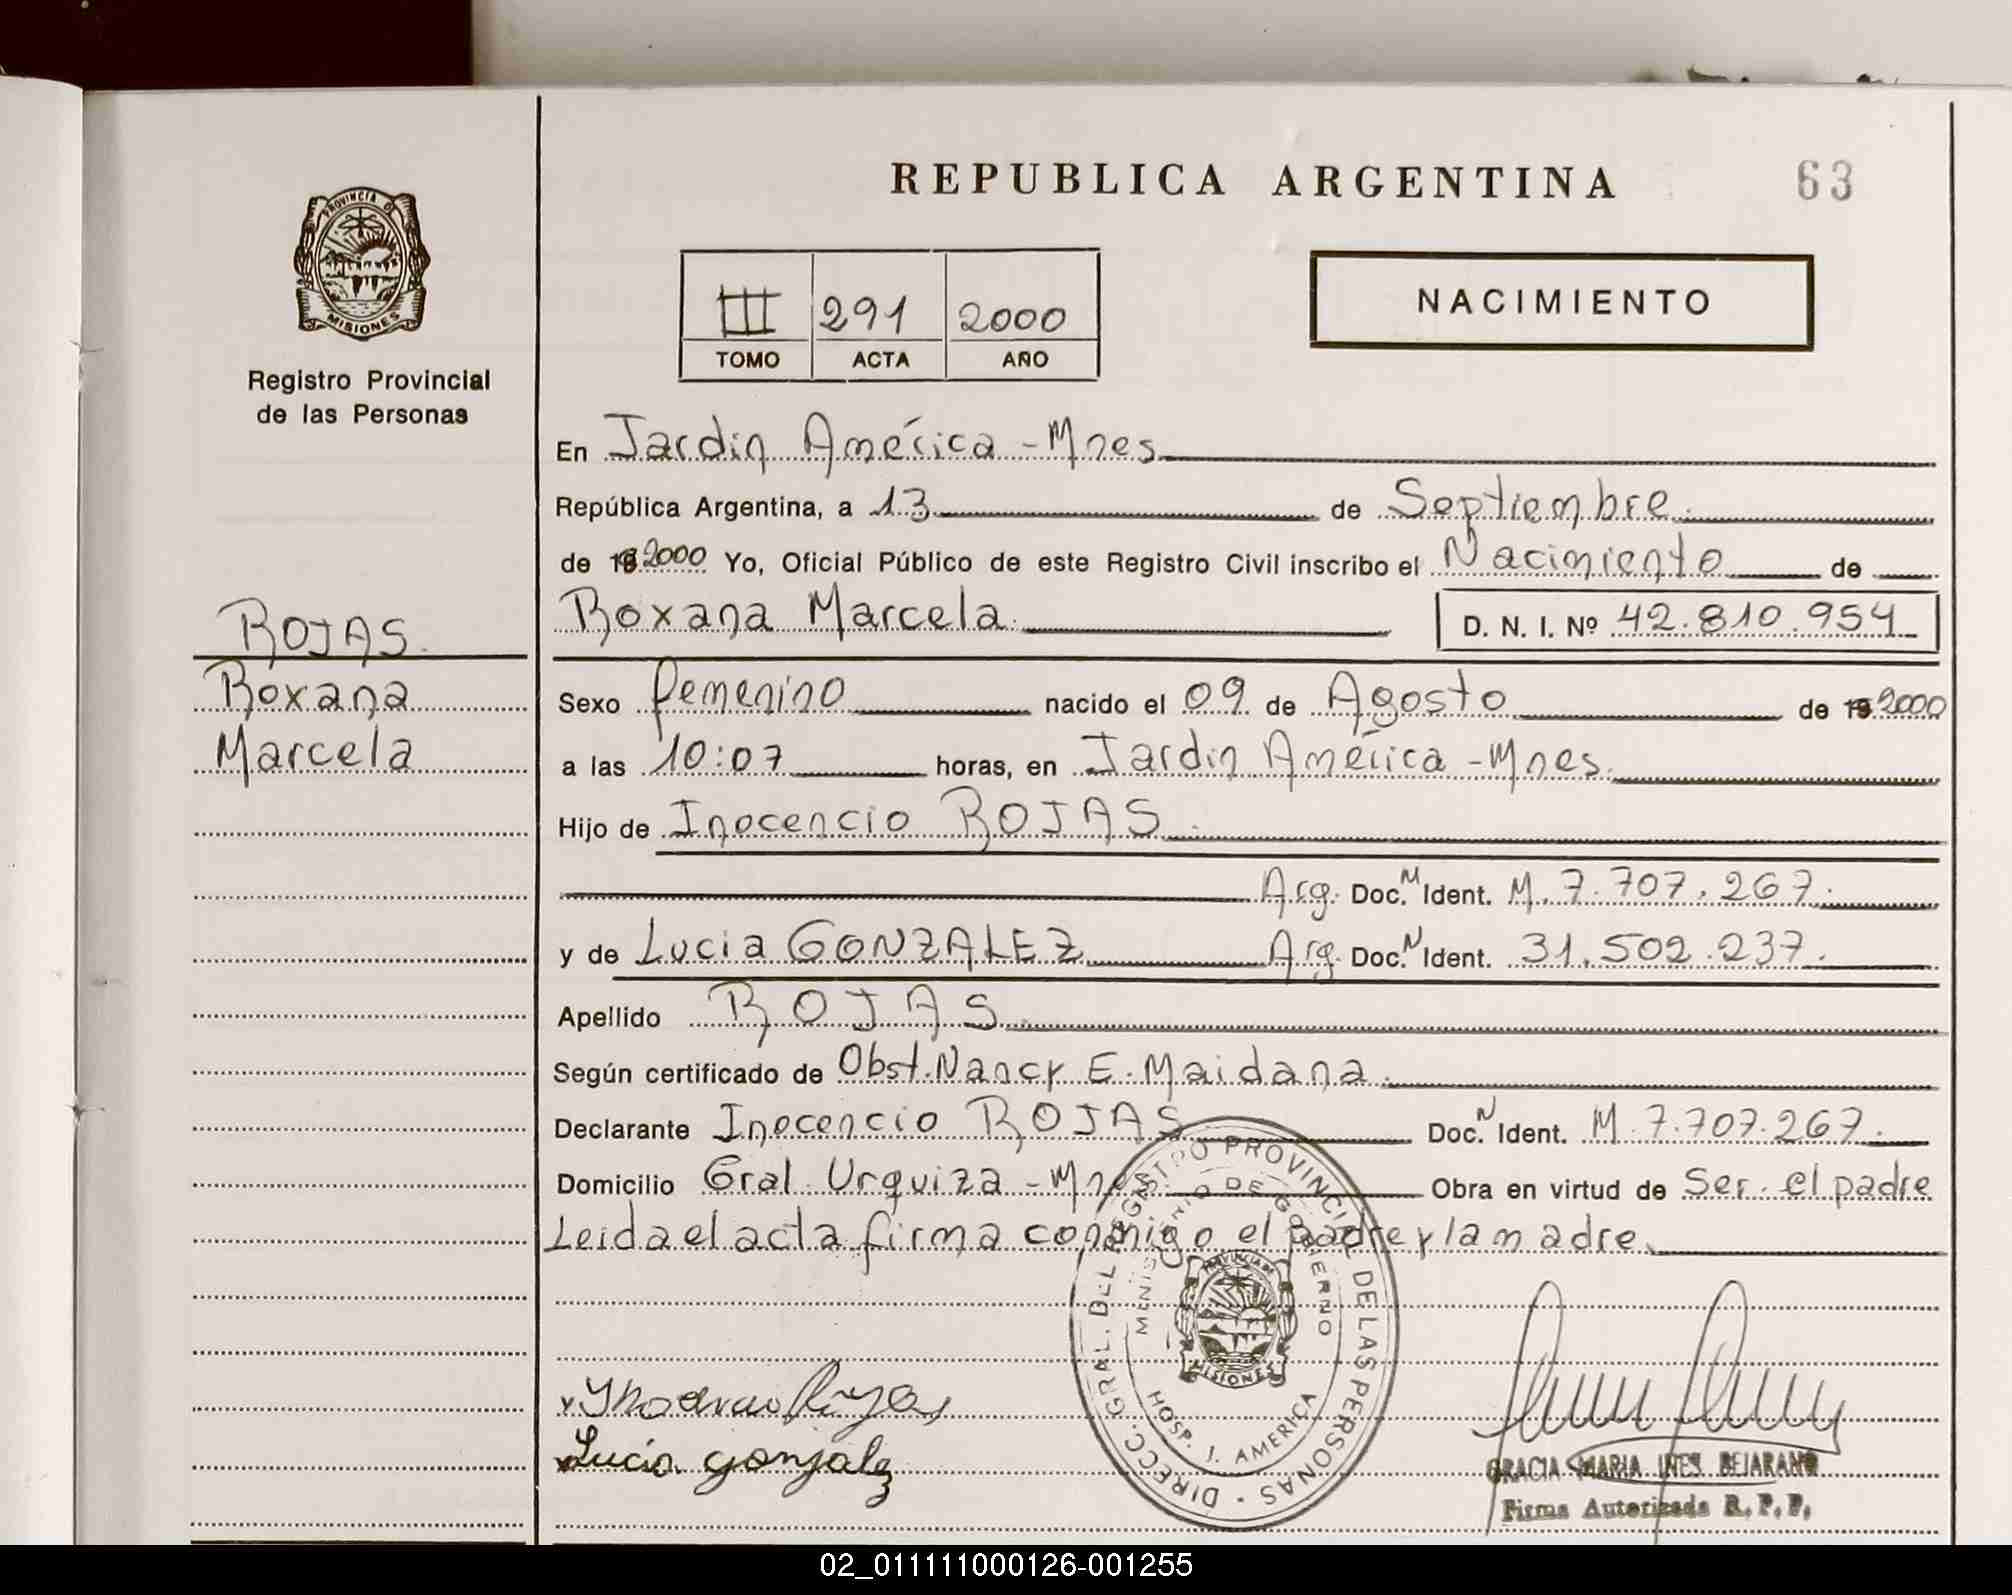 REPUBLICA ARGENTINA
63
PROVINCIA DE
MISIONES
Registro Provincial
de las Personas
III 291 2000
TOMO ACTA AÑO
NACIMIENTO
En Jardin América - Mnes
República Argentina, a 13 de Septiembre.
de 2000 Yo, Oficial Público de este Registro Civil inscribo el Nacimiento de
Roxana Marcela. D. N. I. Nº 42.810.954
ROJAS.
Roxana
Marcela
Sexo femenino nacido el 09 de Agosto de 2000
a las 10:07 horas, en Jardin América - Mnes.
Hijo de Inocencio ROJAS.
Arg. Doc. M Ident. M. 7.707.267.
y de Lucia GONZALEZ Arg. Doc. N Ident. 31.502.237.
Apellido ROJAS.
Según certificado de Obst. Nancy E. Maidana.
Declarante Inocencio ROJAS Doc. N Ident. M. 7.707.267.
Domicilio Gral. Urquiza - Mnes Obra en virtud de Ser el padre
Leida el acta firma conmigo el padre y la madre.
DIRECC. GRAL. DEL REGISTRO PROVINCIAL DE LAS PERSONAS
MINISTERIO DE GOBIERNO
HOSP. J. AMERICA
PROVINCIA DE
MISIONES
Lucia gonzalez
GRACIA MARIA INES BEJARANO
Firma Autorizada R. P. P.
02_011111000126-001255